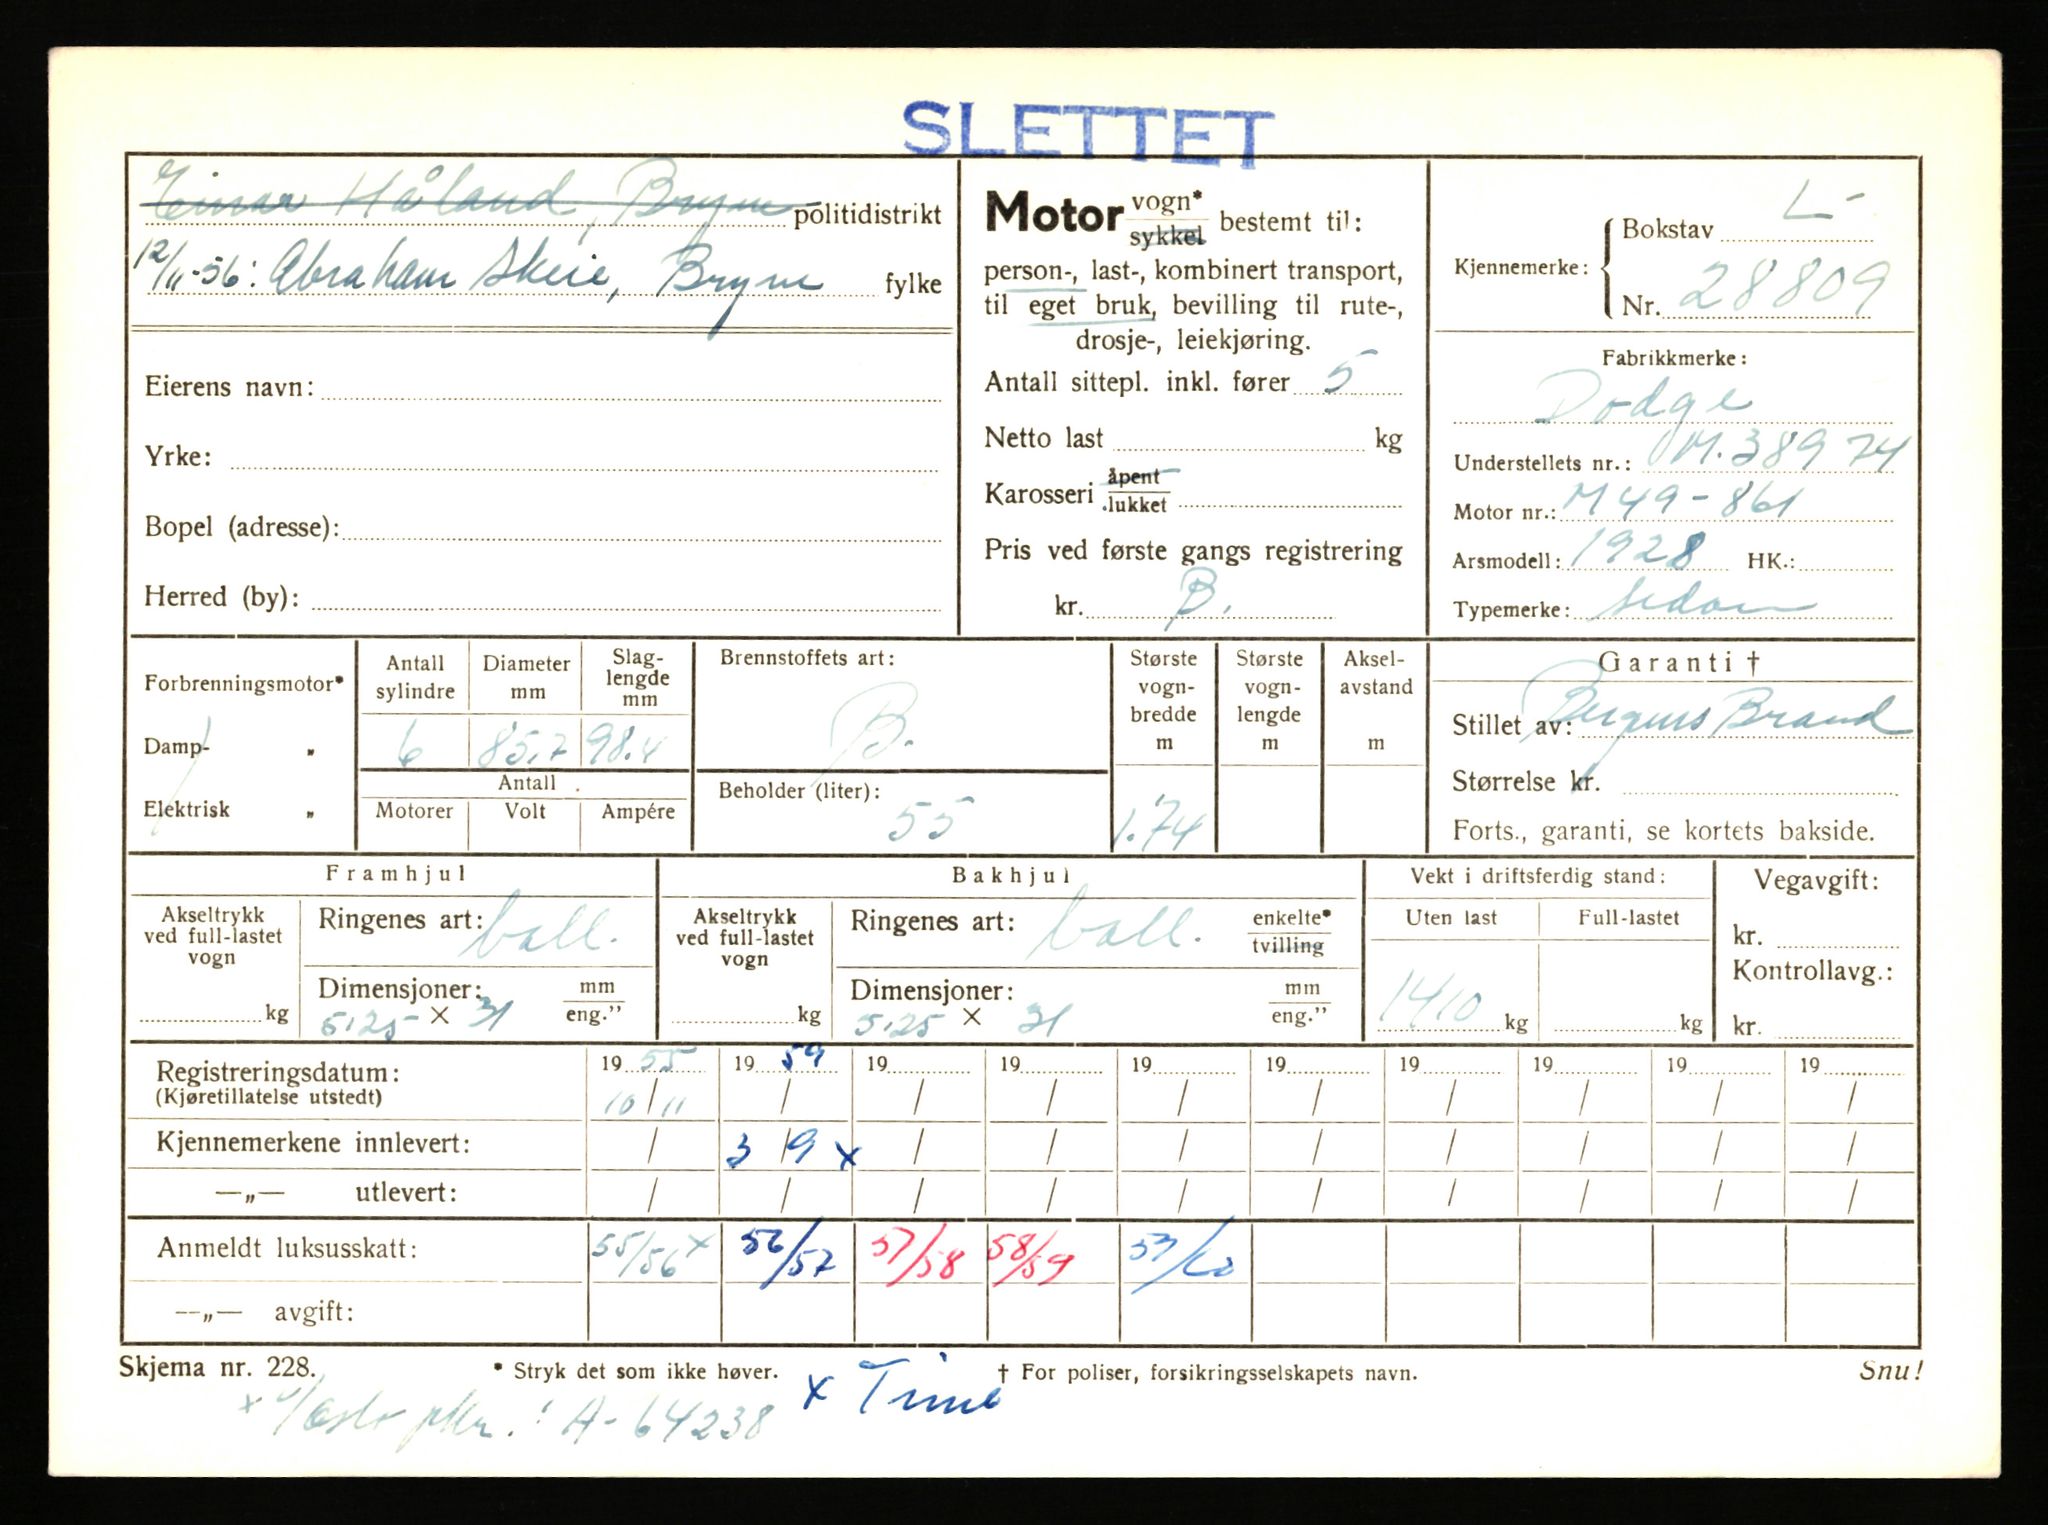 SLETTET
Einar Håland, Bryne politidistrikt
12/11-56: Abraham Skeie, Bryne fylke
Eierens navn:
Yrke:
Bopel (adresse):
Herred (by):
Motor vogn* sykkel bestemt til:
person-, last-, kombinert transport,
til eget bruk, bevilling til rute-,
drosje-, leiekjøring.
Antall sittepl. inkl. fører 5
Netto last kg
Karosseri åpent lukket
Pris ved første gangs registrering
kr. B.
Kjennemerke: Bokstav L-
Nr. 28809
Fabrikkmerke:
Dodge
Understellets nr.: M.38974
Motor nr.: M49-861
Arsmodell: 1928 HK.:
Typemerke: sedan
Forbrenningsmotor*
Damp- „
Elektrisk „
Antall sylindre Diameter mm Slag-lengde mm
6 85,7 98.4
Antall
Motorer Volt Ampére
Brennstoffets art:
B.
Beholder (liter):
55
Største vogn-bredde m
1.74
Største vogn-lengde m
Aksel-avstand m
Garanti †
Stillet av: Bergens Brand
Størrelse kr.
Forts., garanti, se kortets bakside.
Framhjul
Akseltrykk ved full-lastet vogn
kg
Ringenes art: ball.
Dimensjoner: mm eng."
5.25 × 31
Bakhjul
Akseltrykk ved full-lastet vogn
kg
Ringenes art: ball. enkelte* tvilling
Dimensjoner: mm eng."
5.25 × 31
Vekt i driftsferdig stand:
Uten last Full-lastet
1410 kg kg
Vegavgift:
kr.
Kontrollavg.:
kr.
Registreringsdatum: 19 55 19 59 19 19 19 19 19 19 19 19
(Kjøretillatelse utstedt) 10/11 / / / / / / / / /
Kjennemerkene innlevert: / 3/9 x / / / / / / / /
—„— utlevert: / / / / / / / / / /
Anmeldt luksusskatt: 55/56 x 56/57 57/58 58/59 59/60
—„— avgift:
Skjema nr. 228. * Stryk det som ikke høver. † For poliser, forsikringsselskapets navn. Snu!
x Time
x A-64238